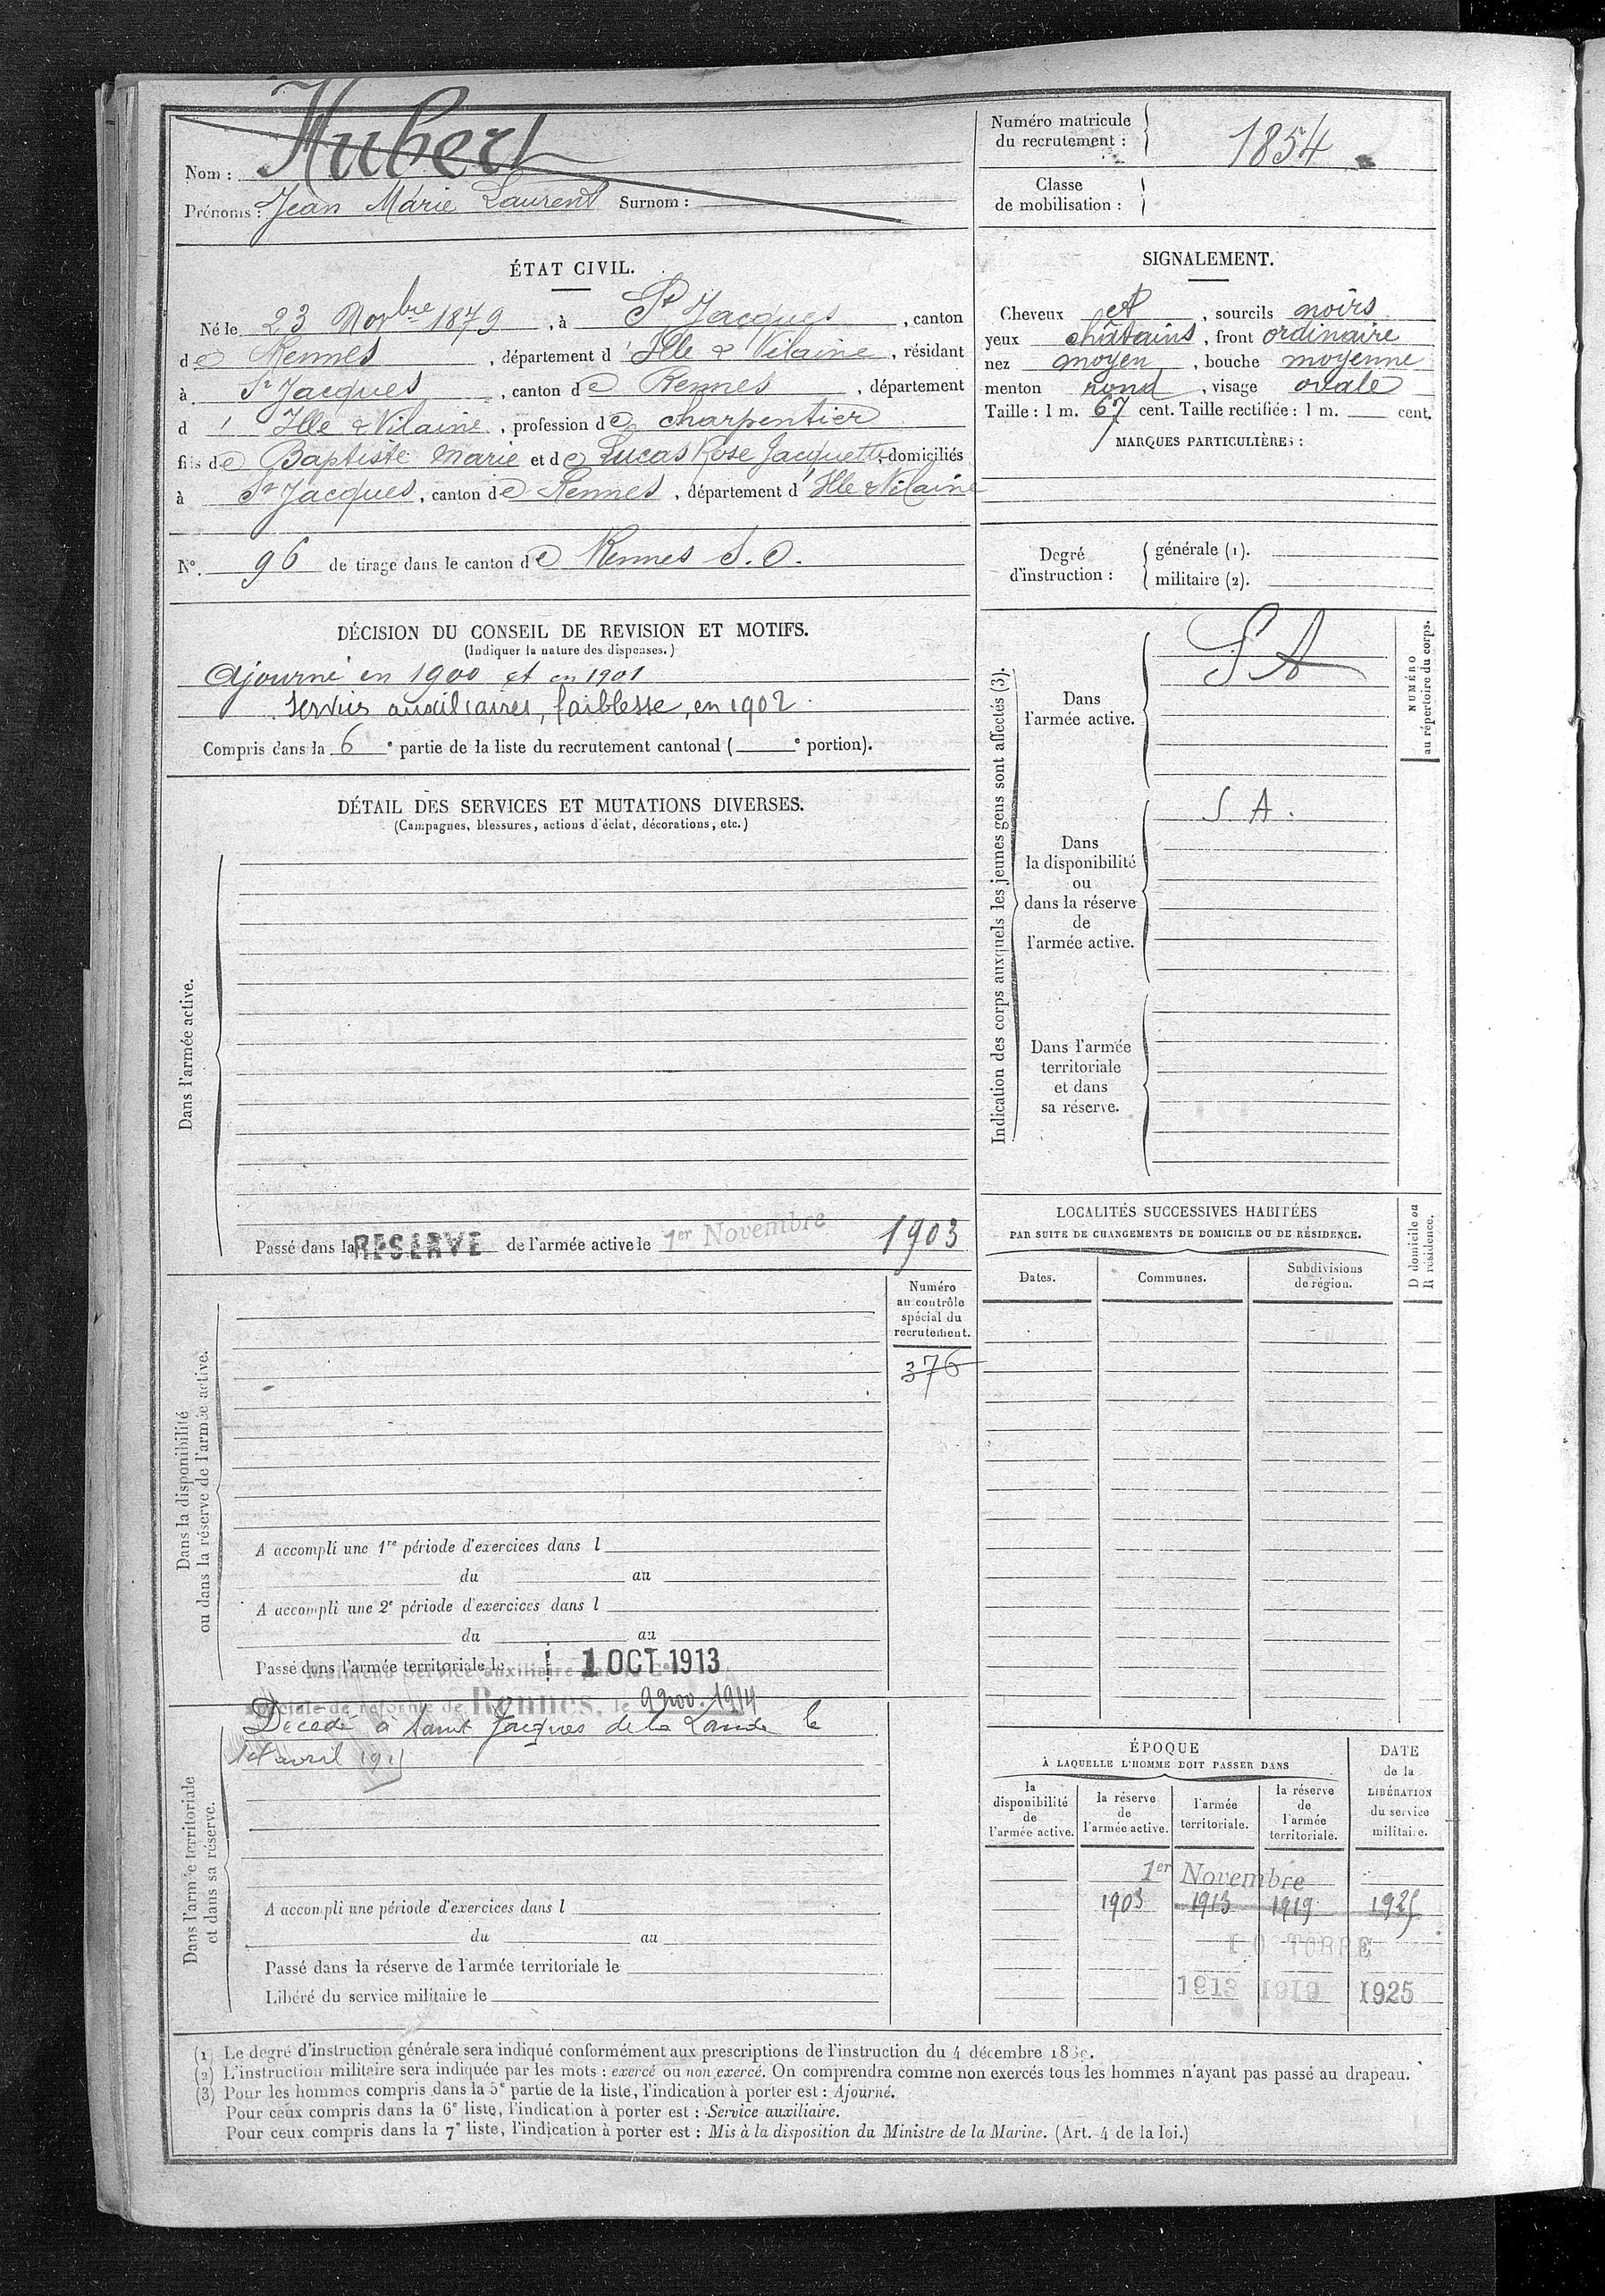 Nom : Hubert
Prénoms : Jean Marie Laurent Surnom :
Numéro matricule du recrutement : 1854
Classe de mobilisation :
ÉTAT CIVIL.
Né le 23 Novbre 1879, à St Jacques, canton
de Rennes, département d'Ille & Vilaine, résidant
à St Jacques, canton de Rennes, département
d'Ille & Vilaine, profession de charpentier
fils de Baptiste Marie et de Lucas Rose Jacquette, domiciliés
à St Jacques, canton de Rennes, département d'Ille & Vilaine
N°. 96 de tirage dans le canton de Rennes S.O.
SIGNALEMENT.
Cheveux et, sourcils noirs
yeux châtains, front ordinaire
nez moyen, bouche moyenne
menton rond, visage ovale
Taille : 1 m. 67 cent. Taille rectifiée : 1 m. cent.
MARQUES PARTICULIÈRES :
Degré d'instruction :
générale (1).
militaire (2).
DÉCISION DU CONSEIL DE REVISION ET MOTIFS.
(Indiquer la nature des dispenses.)
Ajourné en 1900 et en 1901
Services auxiliaires, faiblesse, en 1902
Compris dans la 6e partie de la liste du recrutement cantonal ( e portion).
DÉTAIL DES SERVICES ET MUTATIONS DIVERSES.
(Campagnes, blessures, actions d'éclat, décorations, etc.)
Dans l'armée active.
Passé dans la RESERVE de l'armée active le 1er Novembre 1903
Indication des corps auxquels les jeunes gens sont affectés (3).
Dans l'armée active.
S A
Dans la disponibilité ou dans la réserve de l'armée active.
S A.
Dans l'armée territoriale et dans sa réserve.
NUMÉRO au répertoire du corps.
LOCALITÉS SUCCESSIVES HABITÉES
PAR SUITE DE CHANGEMENTS DE DOMICILE OU DE RÉSIDENCE.
Dates. Communes. Subdivisions de région.
D domicile ou R résidence.
Dans la disponibilité ou dans la réserve de l'armée active.
Numéro au contrôle spécial du recrutement.
376
A accompli une 1re période d'exercices dans l
du au
A accompli une 2e période d'exercices dans l
du au
Passé dans l'armée territoriale le 1 OCT 1913
Maintenu Service auxiliaire par la Con
spéciale de réforme de Rennes, le 9 nov. 1914
Dans l'armée territoriale et dans sa réserve.
Décédé à Saint Jacques de la Lande le
avril
A accompli une période d'exercices dans l
du au
Passé dans la réserve de l'armée territoriale le
Libéré du service militaire le
ÉPOQUE
À LAQUELLE L'HOMME DOIT PASSER DANS
la disponibilité de l'armée active.
la réserve de l'armée active.
l'armée territoriale.
la réserve de l'armée territoriale.
DATE de la LIBÉRATION du service militaire.
1er Novembre
1903 1913 1919 1925
1913 1919 1925
(1) Le degré d'instruction générale sera indiqué conformément aux prescriptions de l'instruction du 4 décembre
(2) L'instruction militaire sera indiquée par les mots : exercé ou non exercé. On comprendra comme non exercés tous les hommes n'ayant pas passé au drapeau.
(3) Pour les hommes compris dans la 5e partie de la liste, l'indication à porter est : Ajourné.
Pour ceux compris dans la 6e liste, l'indication à porter est : Service auxiliaire.
Pour ceux compris dans la 7e liste, l'indication à porter est : Mis à la disposition du Ministre de la Marine. (Art. 4 de la loi.)